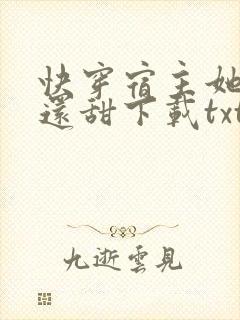 快穿宿主她
還甜下載txt
九逝雲見